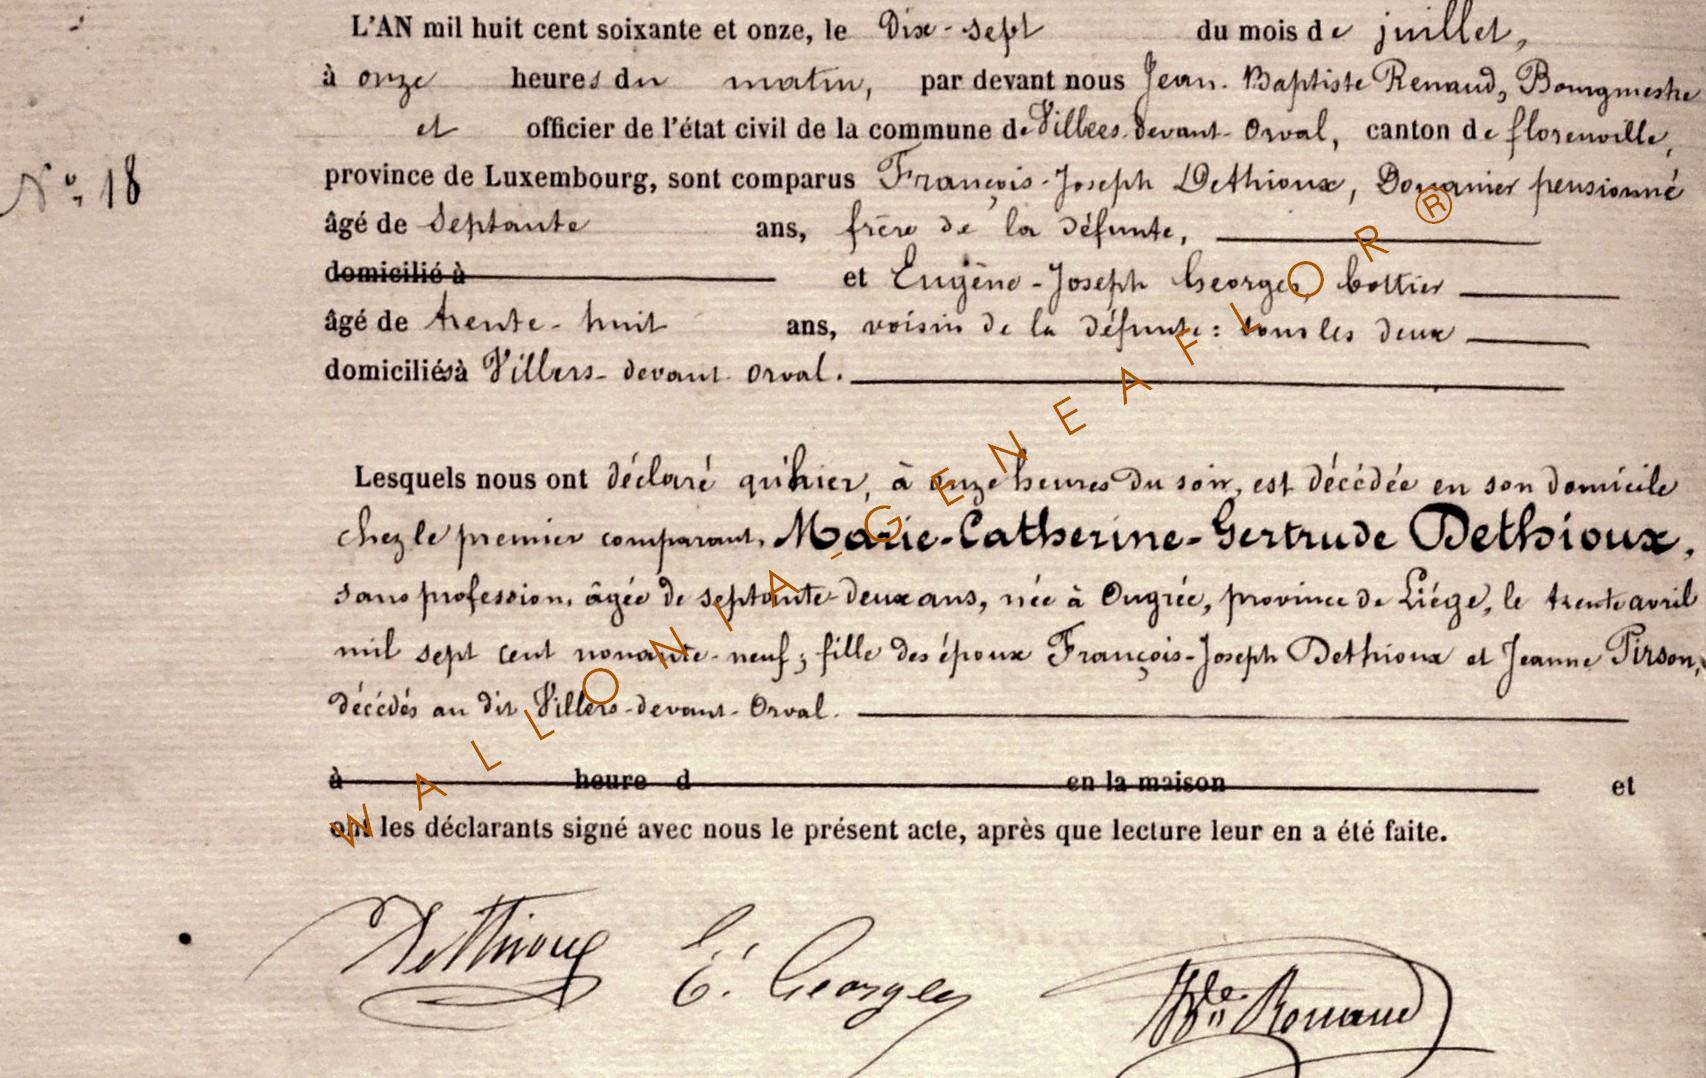 L'AN mil huit cent soixante et onze, le Dix-sept du mois de juillet,
à onze heures du matin, par devant nous Jean-Baptiste Renaud, Bourgmestre
et officier de l'état civil de la commune de Villers-devant-Orval, canton de florenville,
N° 18
province de Luxembourg, sont comparus François-Joseph Dethioux, Douanier pensionné
âgé de Septante ans, frère de la défunte,
domicilié à et Eugène-Joseph Georges, Cottier
âgé de trente-huit ans, voisin de la défunte : tous les deux
domiciliés à Villers-devant-Orval.
Lesquels nous ont déclaré qu'hier, à onze heures du soir, est décédée en son domicile
chez le premier comparant, Marie-Catherine-Gertrude Dethioux,
sans profession, âgée de septante-deux ans, née à Ougrée, province de Liége, le trente avril
mil sept cent nonante-neuf ; fille des époux François-Joseph Dethioux et Jeanne Pirson,
décédés au dit Villers-devant-Orval.
à heure d en la maison et
ont les déclarants signé avec nous le présent acte, après que lecture leur en a été faite.
Dethioux E. Georges Renaud
WALLONIA-GENEAFLOR®